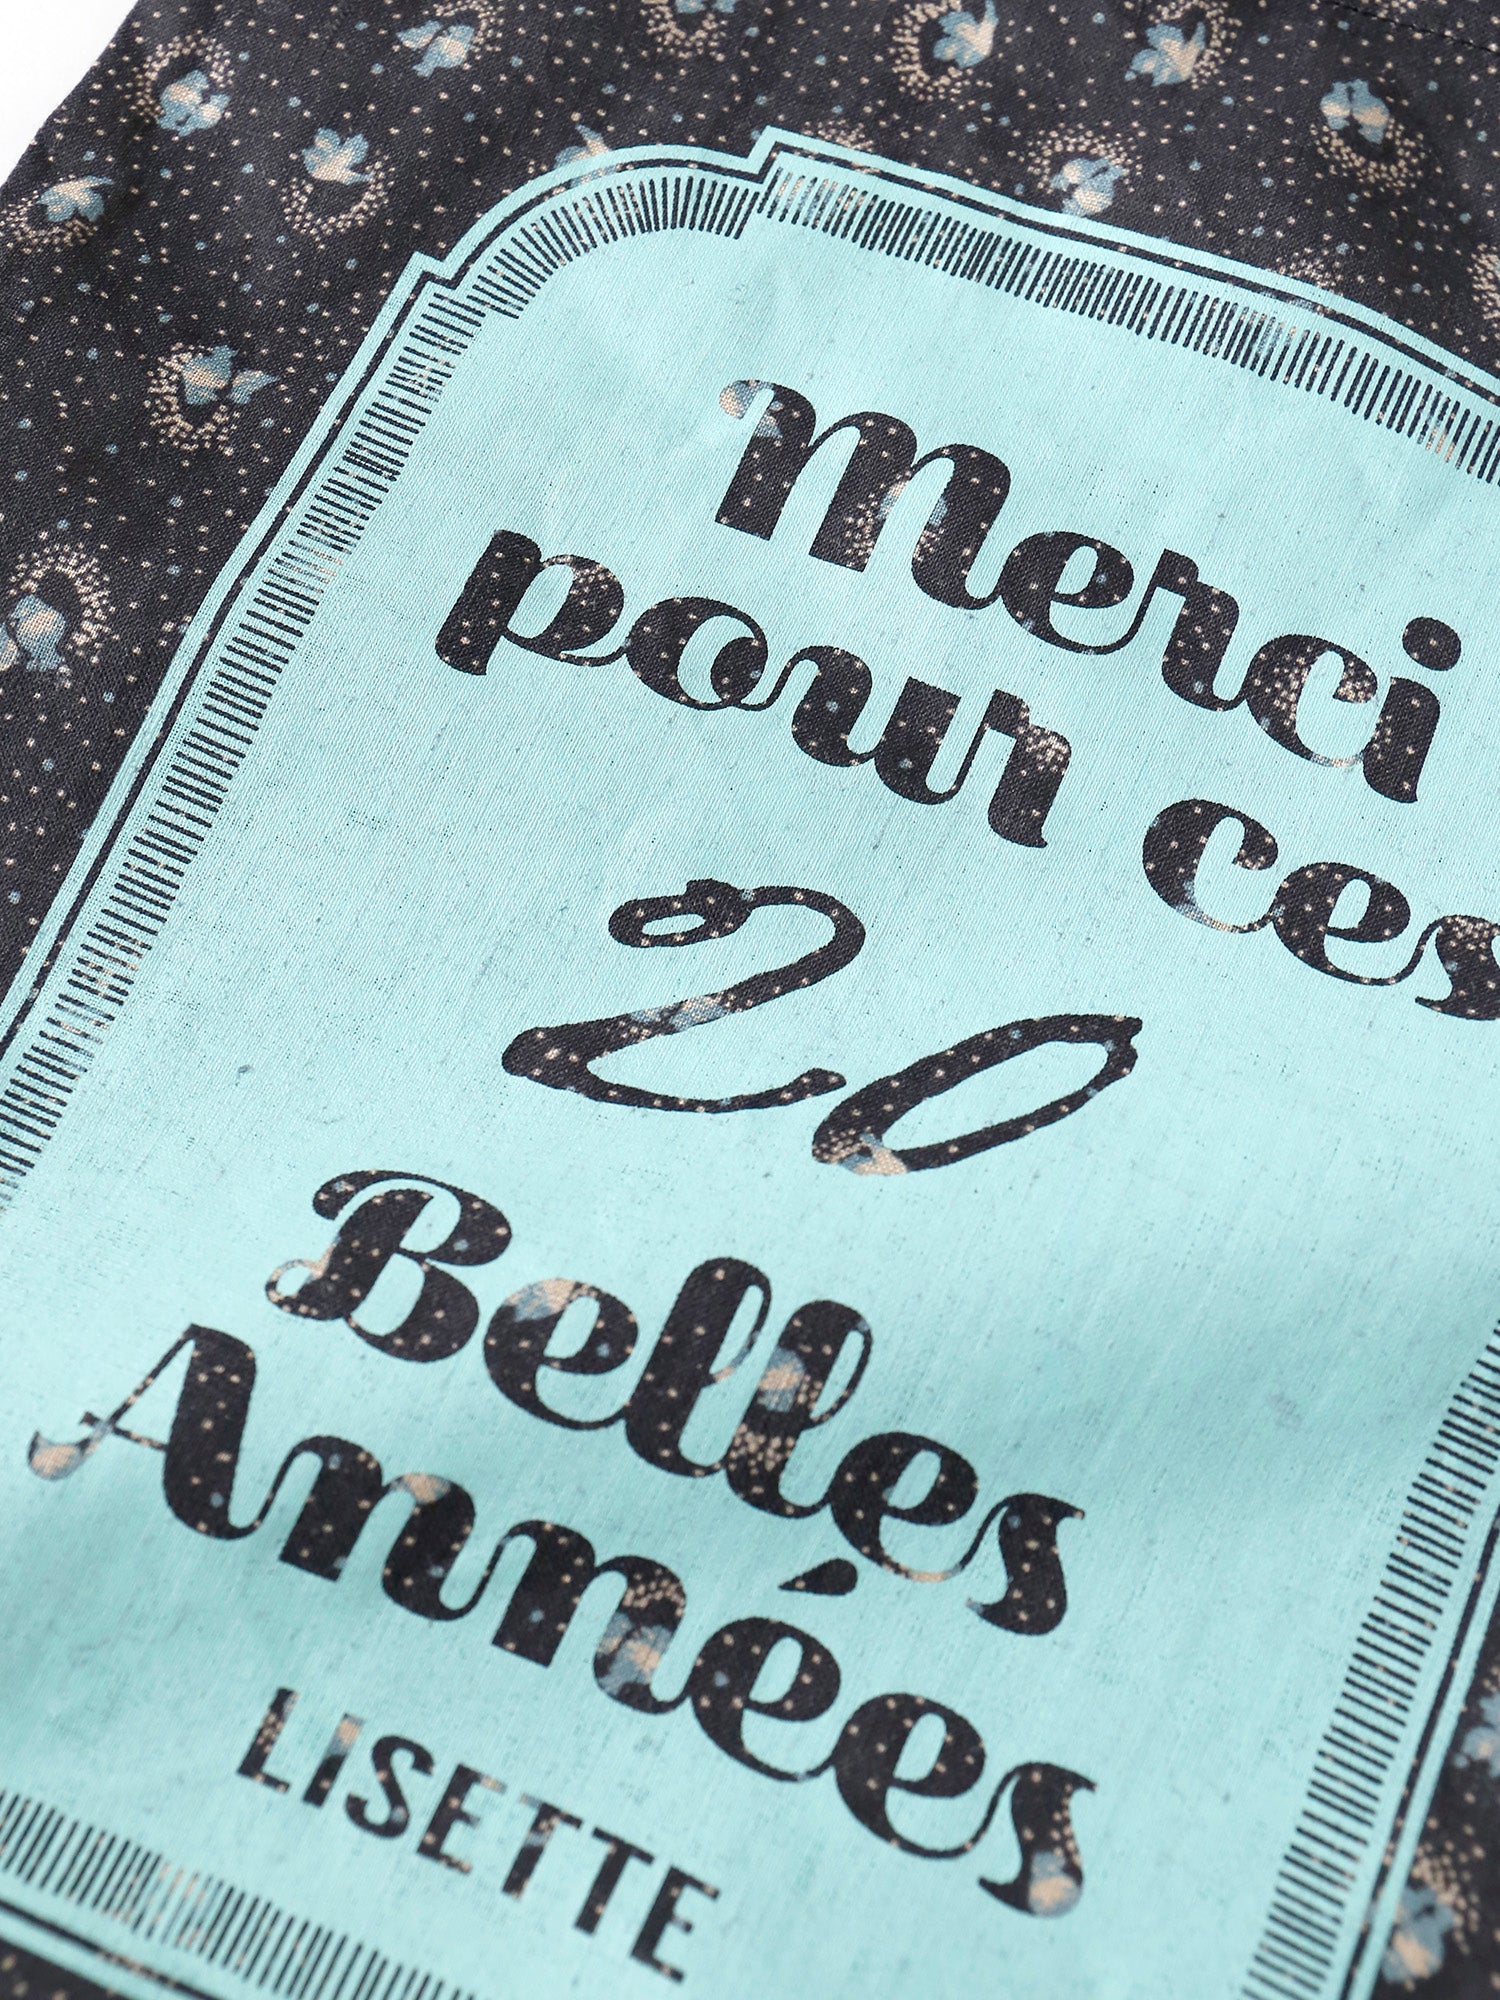 Merci
pour ces
20
Belles
Années
LISETTE